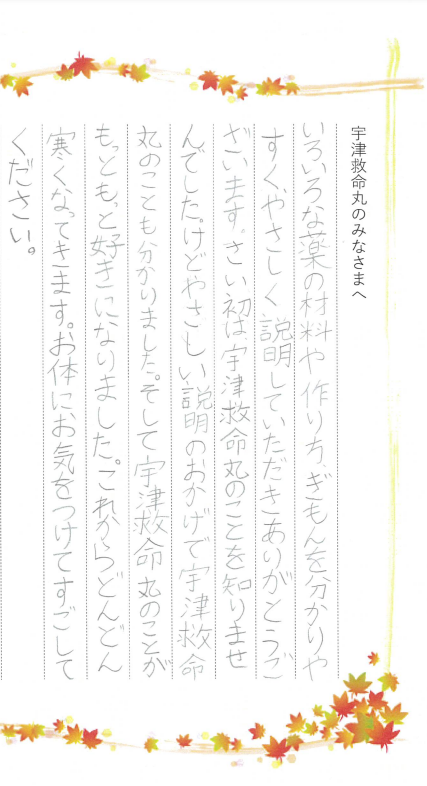 宇津救命丸のみなさまへ
いろいろな薬の材料や作り方、ぎもんを分かりや
すく、やさしく説明していただきありがとうご
ざいます。さい初は、宇津救命丸のことを知りませ
んでした。けどやさしい説明のおかげで宇津救命
丸のことも分かりました。そして宇津救命丸のことが
もっともっと好きになりました。これからどんどん
寒くなってきます。お体にお気をつけてすごして
ください。